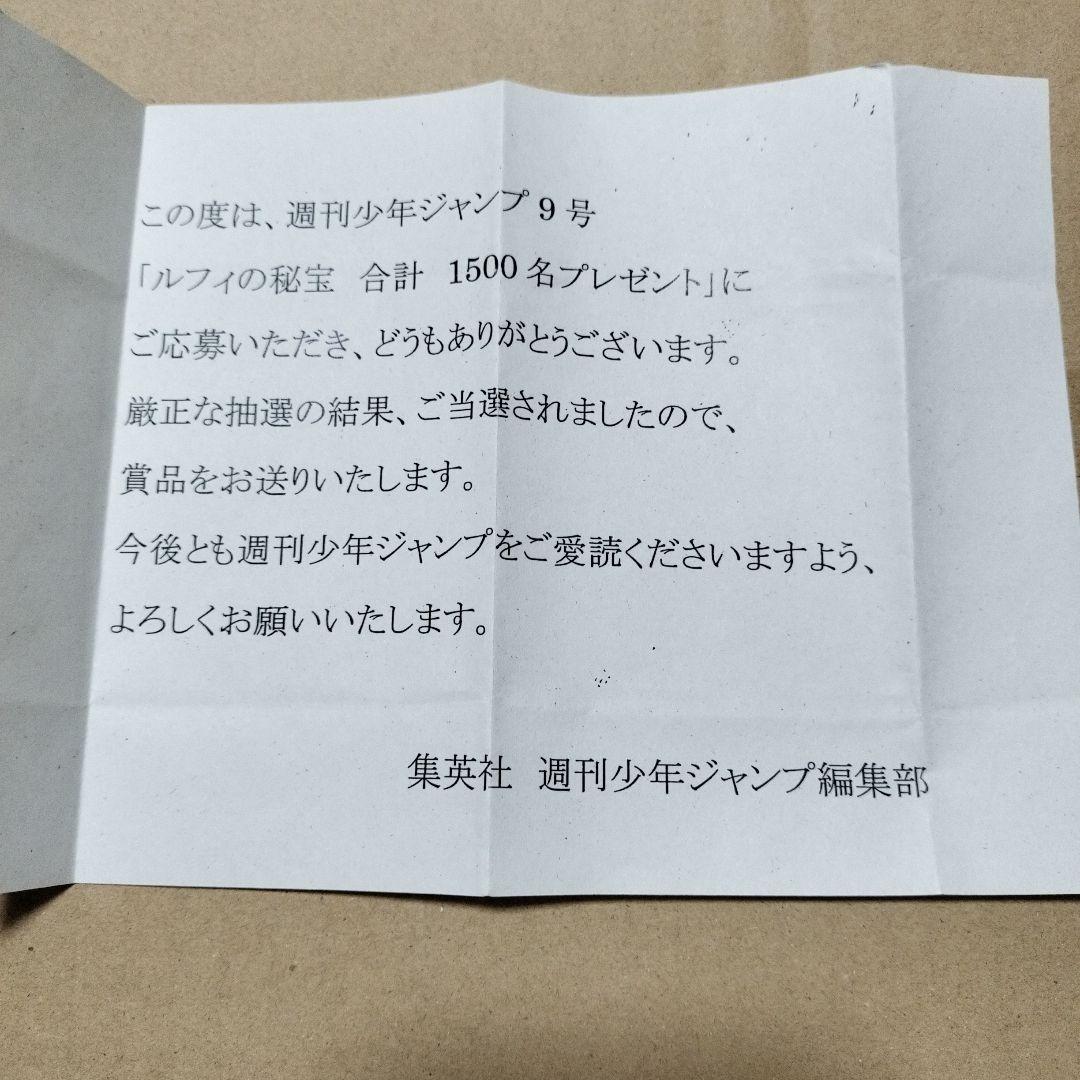 この度は、週刊少年ジャンプ 9 号
「ルフィの秘宝　合計　1500 名プレゼント」に
ご応募いただき、どうもありがとうございます。
厳正な抽選の結果、ご当選されましたので、
賞品をお送りいたします。
今後とも週刊少年ジャンプをご愛読くださいますよう、
よろしくお願いいたします。
集英社　週刊少年ジャンプ編集部